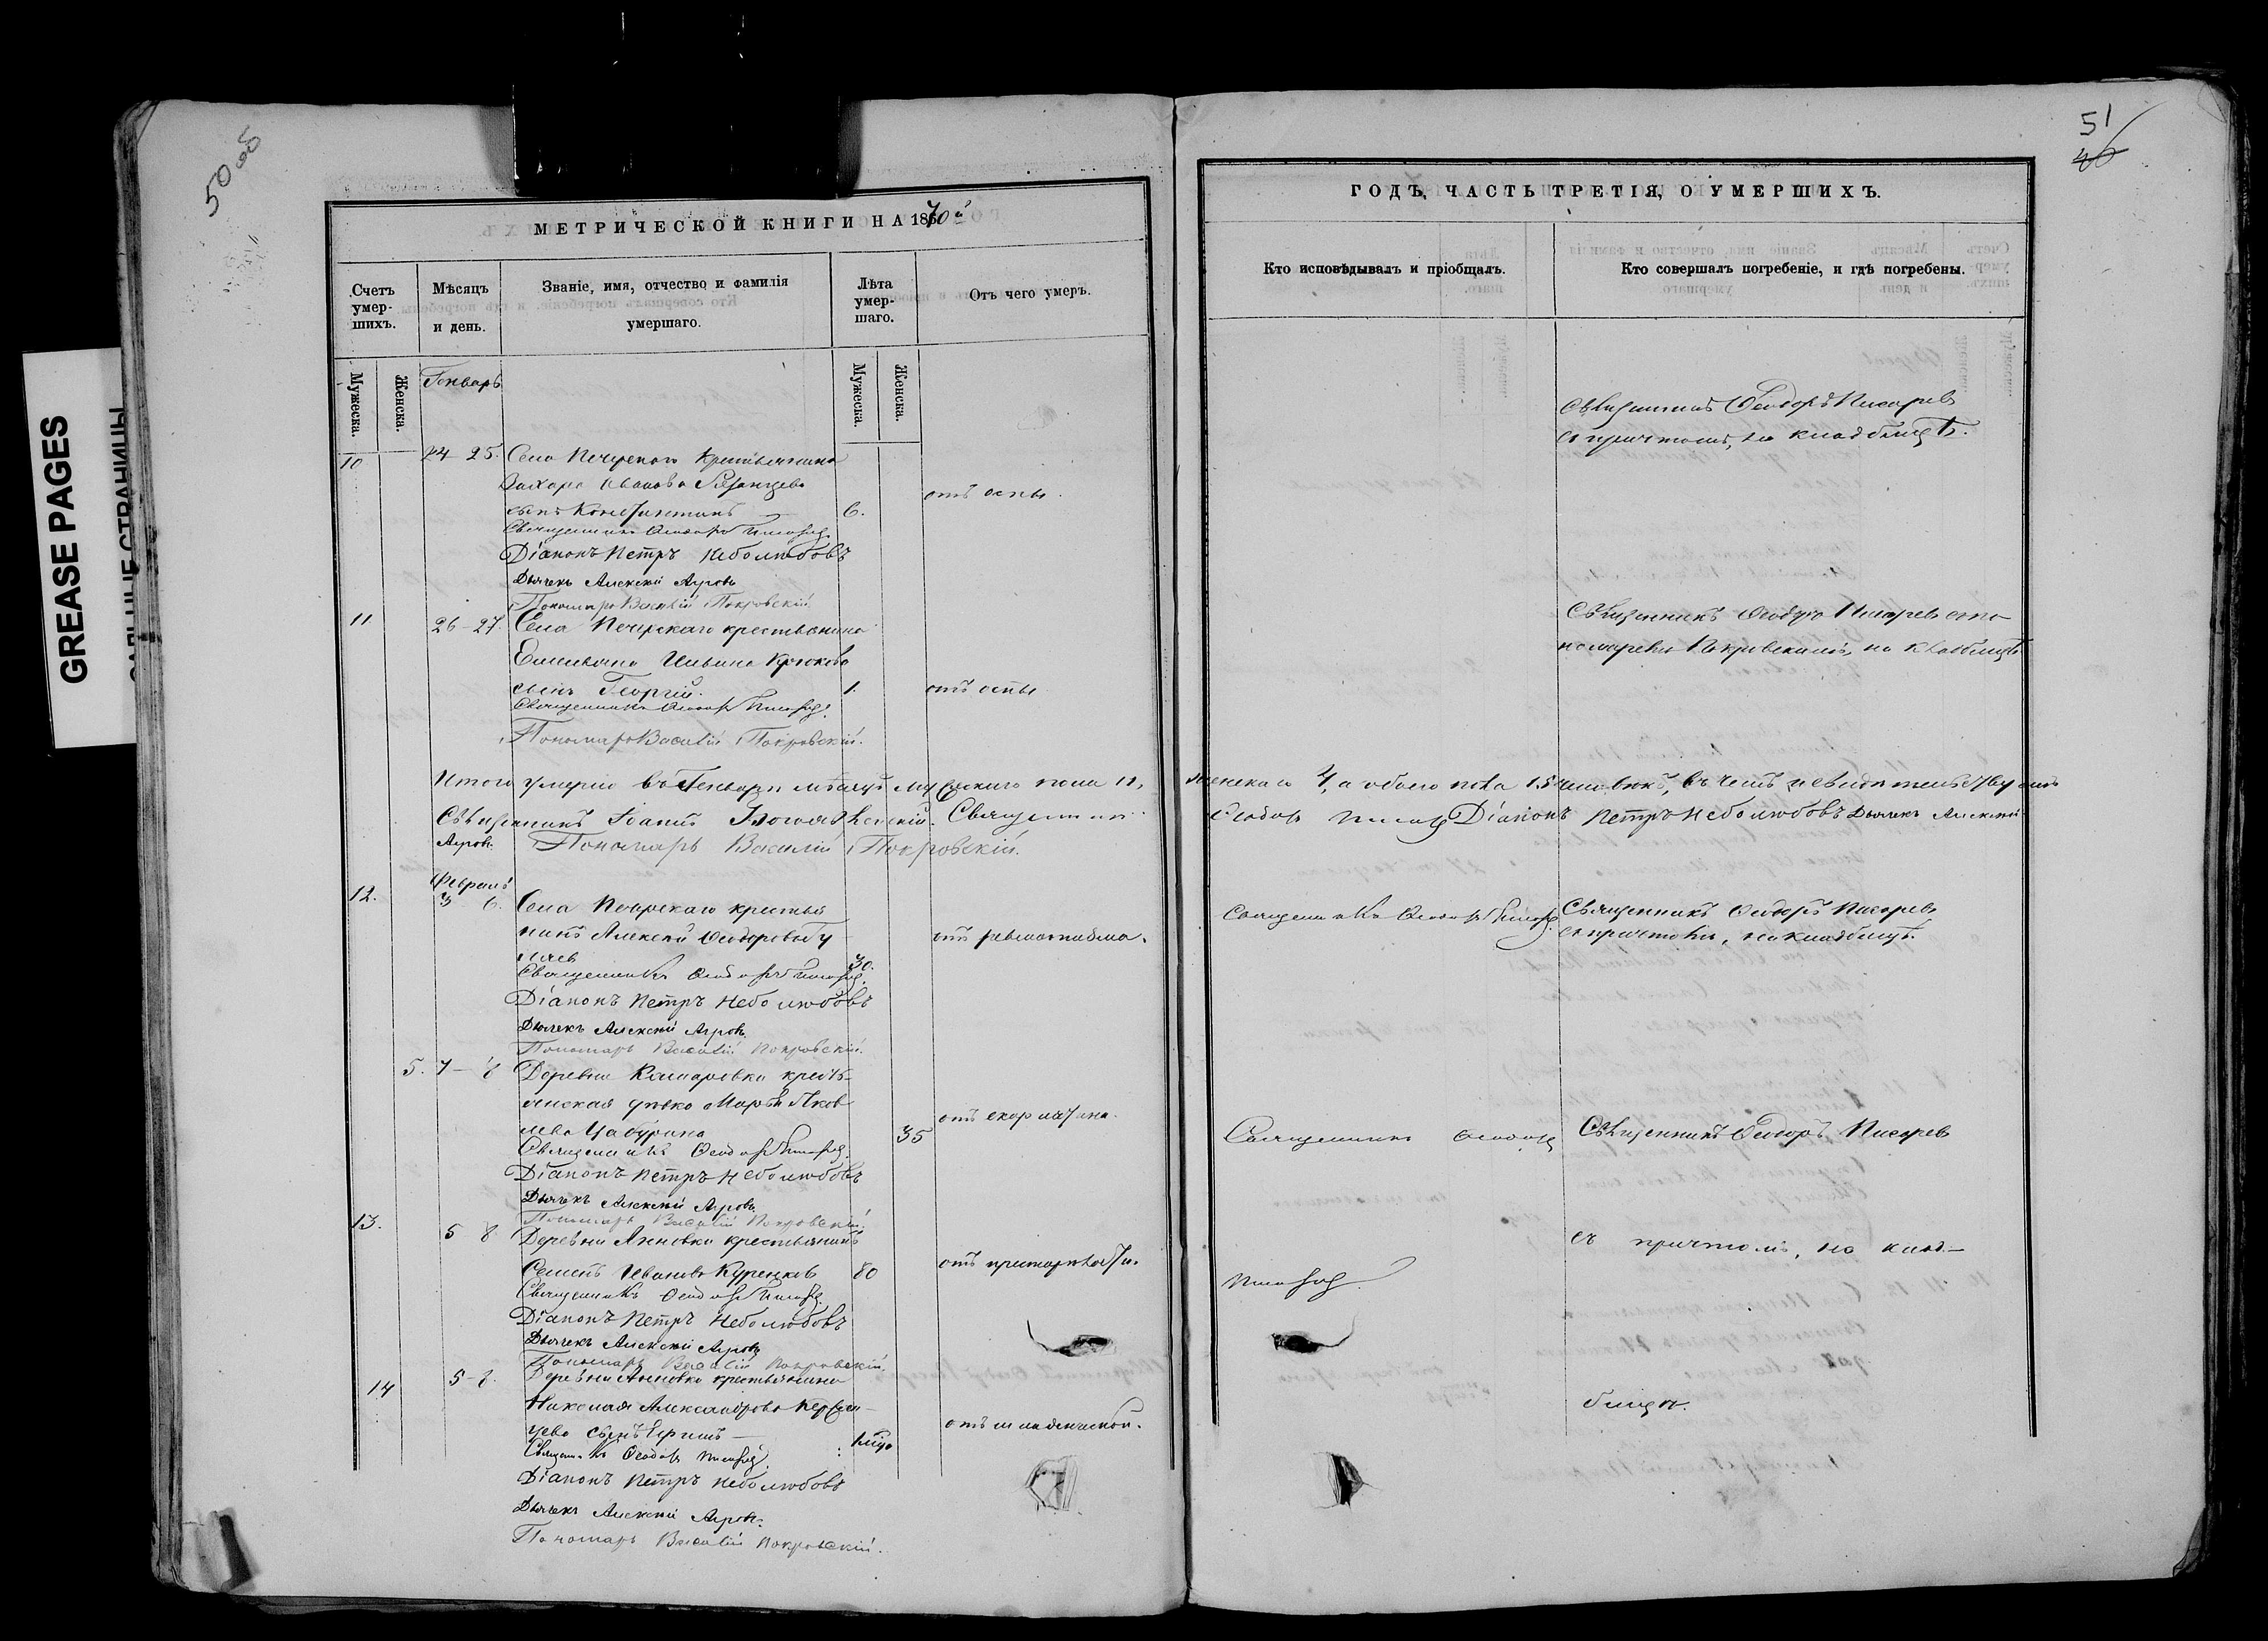 50 об
GREASE PAGES
САЛЬНЫЕ СТРАНИЦЫ
МЕТРИЧЕСКОЙ КНИГИ НА 1870й
Счетъ умер-шихъ.
Мѣсяцъ и день.
Званіе, имя, отчество и фамилія умершаго.
Лѣта умер-шаго.
Отъ чего умеръ.
Мужеска.
Женска.
Генварь
Мужеска.
Женска.
10
24-25. Села Печерского Крестьянина
Захара Иванова Рязанцева
сынъ Константинъ 6. отъ оспы.
Священникъ Феодоръ Писарев
Діаконъ Петръ Неболюбовъ
Дьячекъ Алексѣй Агровъ
Пономарь Василій Покровскій
11
26-27. Села Печерскаго крестьянина
Емельяна Ильина Крюкова
сынъ Георгій. 1. отъ оспы
Священникъ Феодоръ Писарев.
Пономарь Василій Покровскій.
Итого умерло въ Генварѣ мѣсяцѣ мужескаго пола 11,
Священникъ Іоаннъ Богоявленскій. Священник
Агровъ. Пономарь Василій Покровскій.
Февраль
12. 3 6. Села Печерскаго крестья
нинъ Алексѣй Феодоровъ
30. отъ ревматизма.
Священникъ Феодоръ Писарев.
Діаконъ Петръ Неболюбовъ
Дьячекъ Алексѣй Агровъ
Пономарь Василій Покровскій.
5. 7-8 Деревни Комаровки кресть-
янская дѣвка Марья Яков
лева 35 отъ скарлатины.
Священникъ Феодоръ Писарев.
Діаконъ Петръ Неболюбовъ
Дьячекъ Алексѣй Агровъ
Пономарь Василій Покровскій.
13. 5 8. Деревни Анновки крестьянинъ
Семенъ Ивановъ Куренков 80 отъ престарѣлости.
Священникъ Феодоръ Писарев
Діаконъ Петръ Неболюбовъ
Дьячекъ Алексѣй Агровъ
Пономарь Василій Покровскій.
14 5-8. Деревни Анновки крестьянина
Николая Александрова
сынъ отъ младенческой.
Священникъ Феодоръ Писарев
Діаконъ Петръ Неболюбовъ
Дьячекъ Алексѣй Агровъ.
Пономарь Василій Покровскій.
51
ГОДЪ, ЧАСТЬ ТРЕТІЯ, О УМЕРШИХЪ.
Кто исповѣдывалъ и пріобщалъ.
Кто совершалъ погребеніе, и гдѣ погребены.
Священникъ Феодоръ Писарев
съ причтомъ, на кладбищѣ.
Священникъ Феодоръ Писарев съ по
номаремъ Покровскимъ, на кладбищѣ
женскаго 4, а обоего пола 15 человѣкъ, въ чемъ и свидѣтельствуемъ
Феодоръ Писарев Діаконъ Петръ Неболюбовъ Дьячекъ Алексѣй
Священникъ Феодоръ Писарев. Священникъ Феодоръ Писарев
съ причтомъ, на кладбищѣ.
Священникъ Феодоръ Священникъ Феодоръ Писарев
съ причтомъ, на клад-
Писарев.
бищѣ.